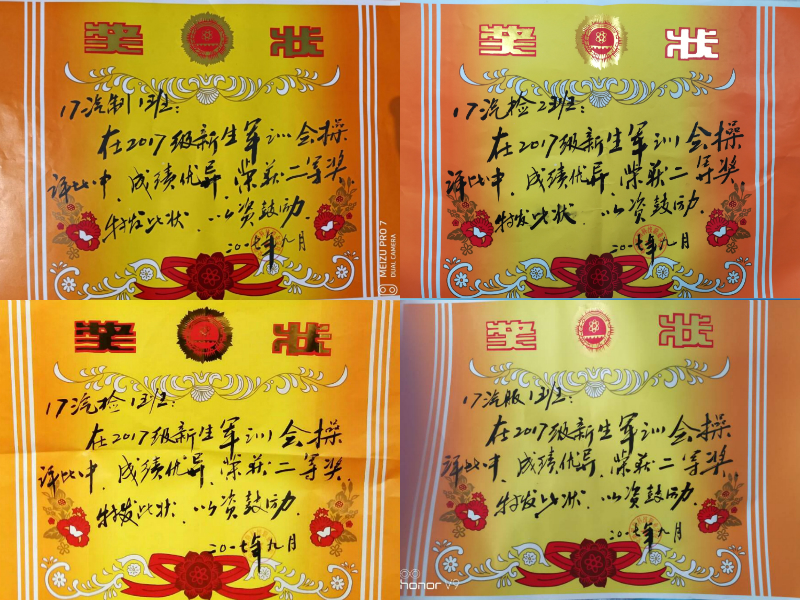 奖 状
17汽制1班:
在2017级新生军训会操
评比中,成绩优异,荣获二等奖
特发此状,以资鼓励.
二〇一七年九月
MEIZU PRO 7
DUAL CAMERA
奖 状
17汽检2班:
在2017级新生军训会操
评比中,成绩优异,荣获二等奖
特发此状,以资鼓励.
二〇一七年九月
奖 状
17汽检1班:
在2017级新生军训会操
评比中,成绩优异,荣获二等奖
特发此状,以资鼓励.
二〇一七年九月
奖 状
17汽服1班:
在2017级新生军训会操
评比中,成绩优异,荣获二等奖
特发此状,以资鼓励.
二〇一七年九月
honor V9